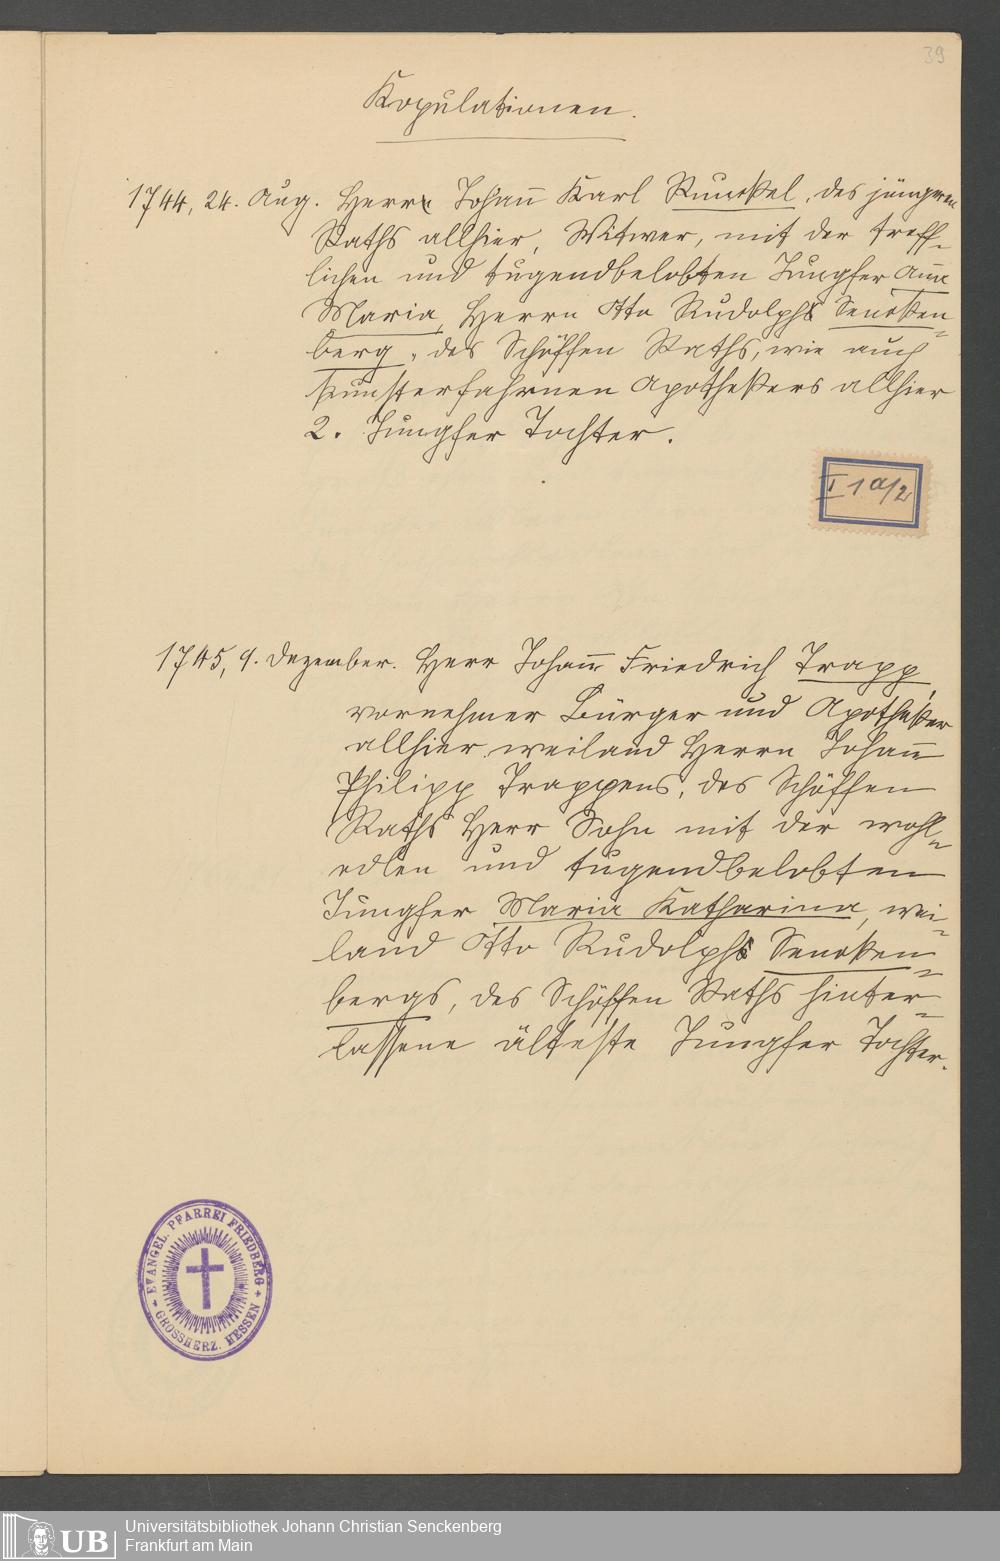 39
Kopulationen.
1744, 24. Aug. Herr Johann Karl Runckel, des jüngeren
Raths allhier, Witwer, mit der treff-
lichen und tugendbelobten Jungfer Anna
Maria, Herrn Otto Rudolphs Sencken-
berg, des Schöffen Raths, wie auch
kunsterfahrnen Apothekers allhier
2. Jungfer Tochter.
I 1 a/2
1745, 9. Dezember. Herr Johann Friedrich Trapp,
vornehmer Bürger und Apotheker
allhier, weiland Herrn Johann
Philipp Trappens, des Schöffen
Raths Herr Sohn mit der wohl-
edlen und tugendbelobten
Jungfer Maria Katharina, wei-
land Otto Rudolphs Sencken-
bergs, des Schöffen Raths hinter-
lassene älteste Jungfer Tochter.
EVANGEL. PFARREI FRIEDBERG
GROSSHERZ. HESSEN
UB
Universitätsbibliothek Johann Christian Senckenberg
Frankfurt am Main